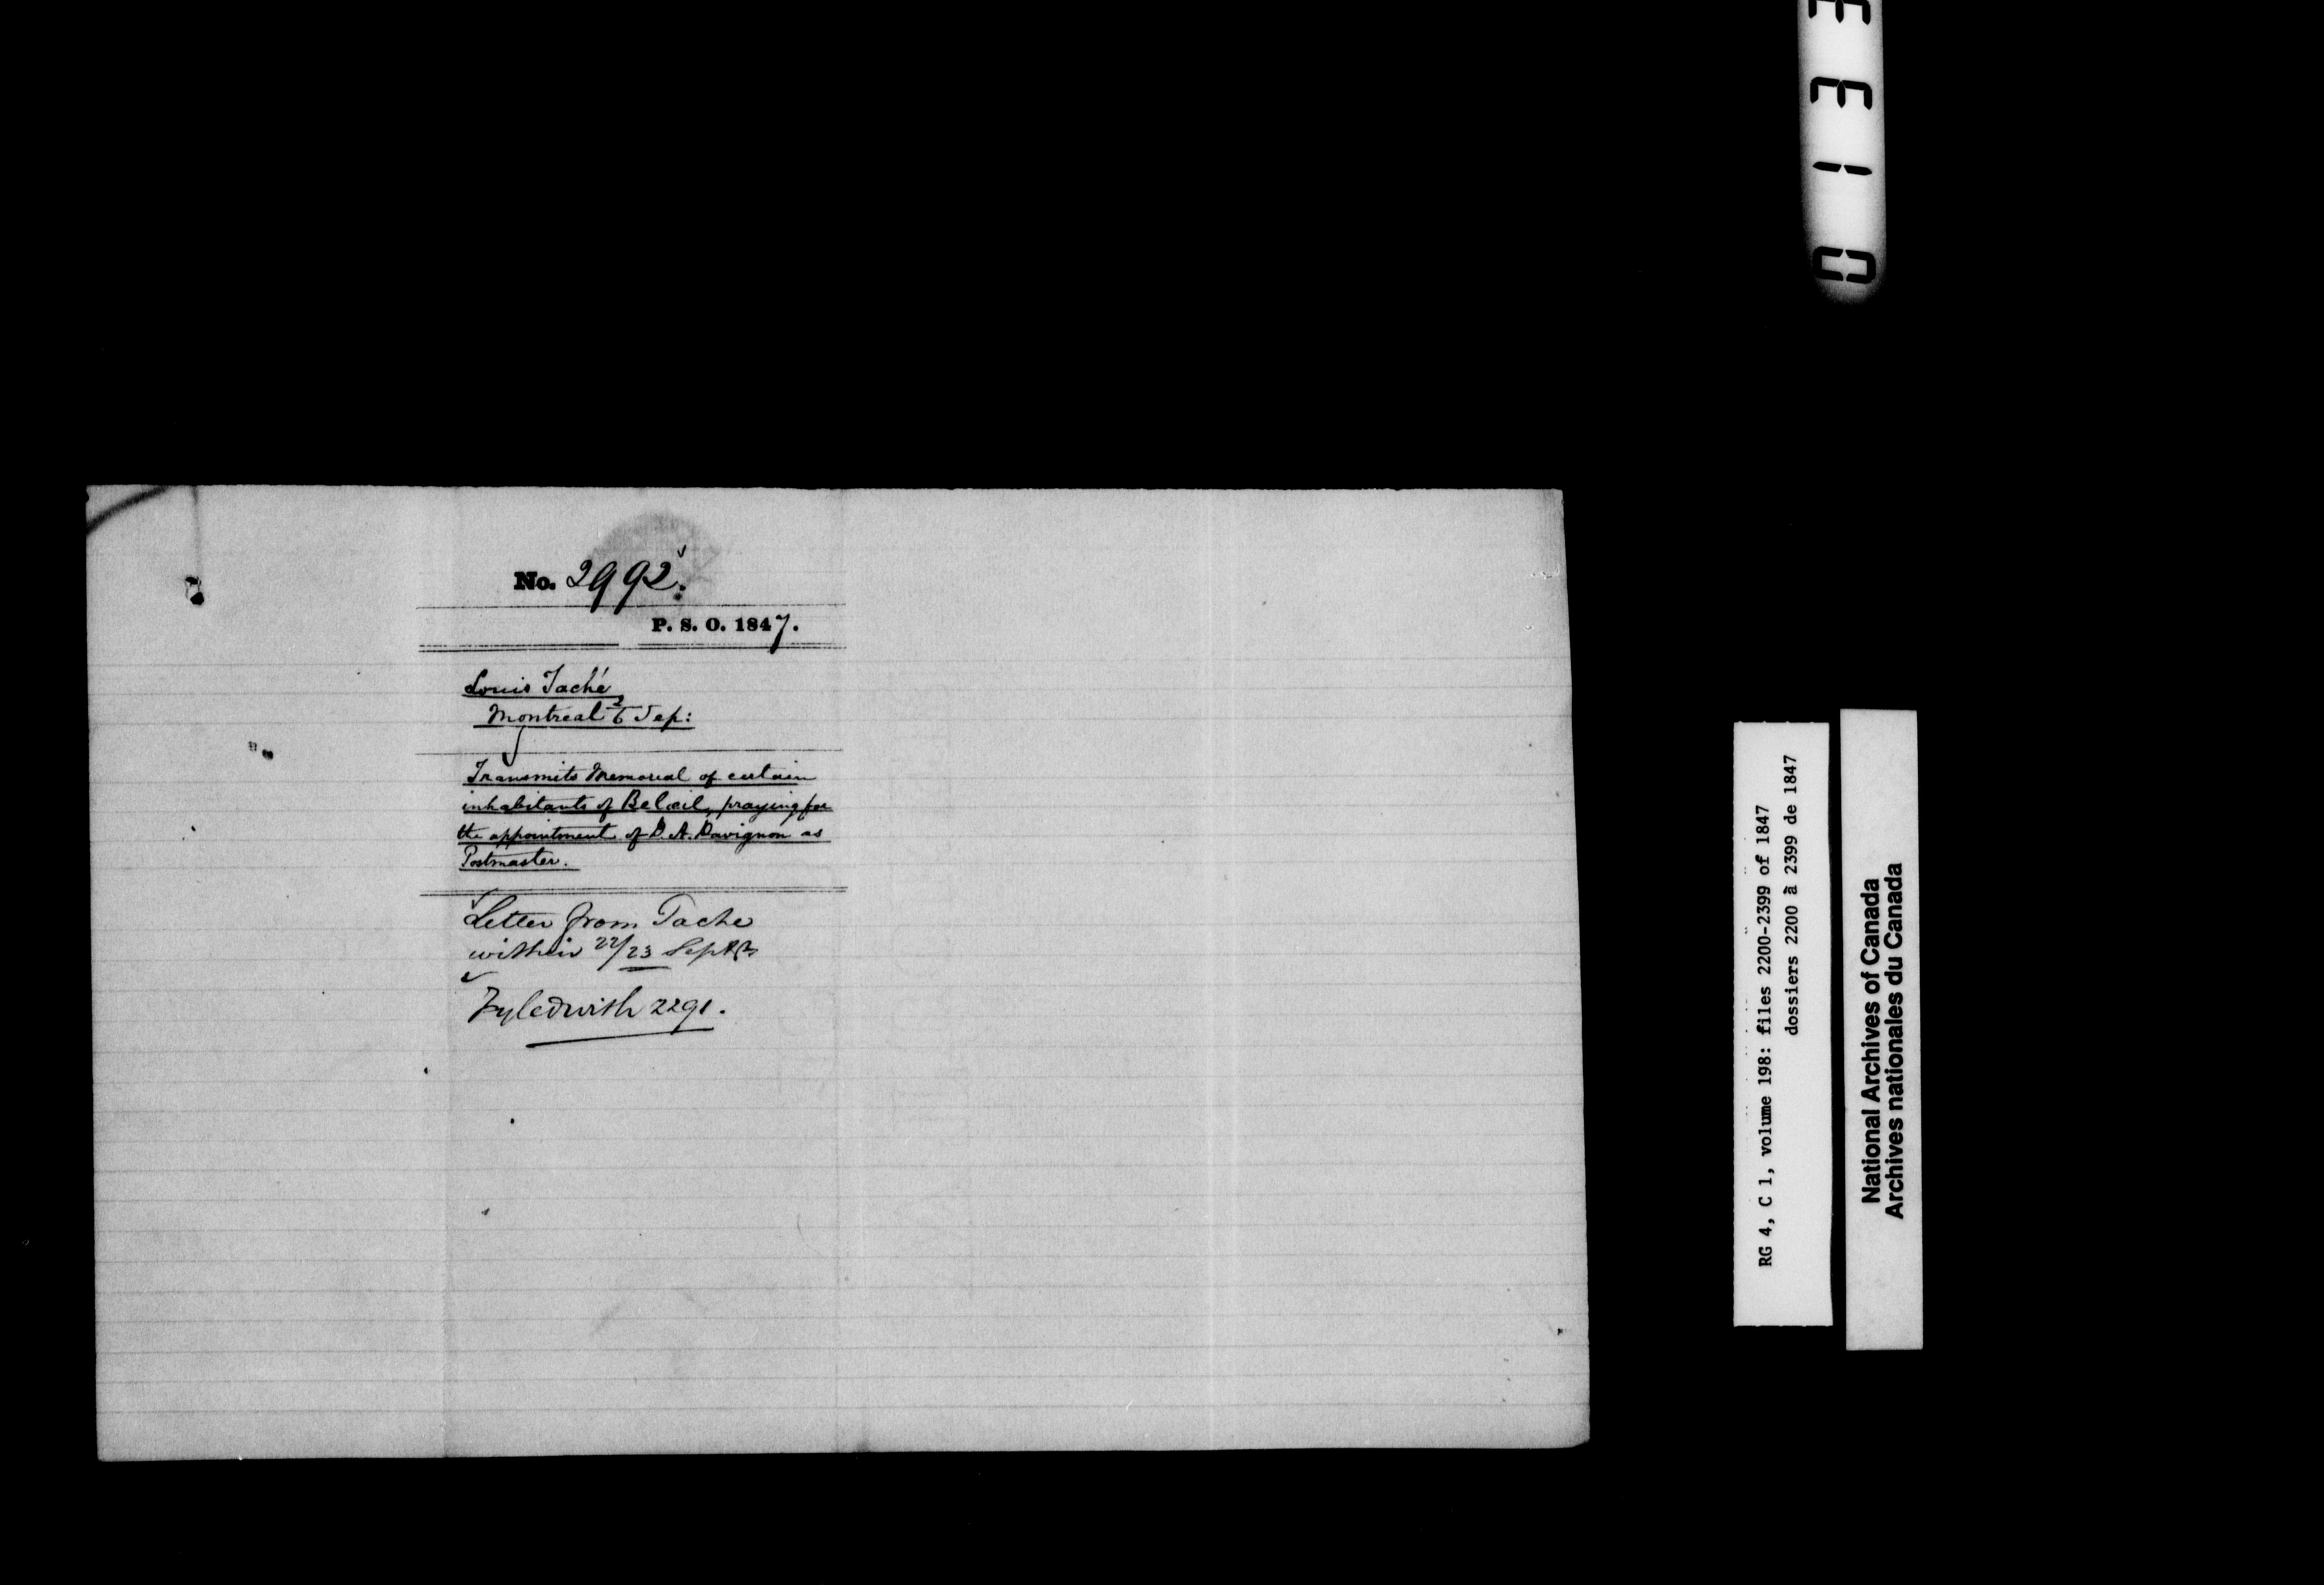 No. 2992.
P. S. O. 1847.
Louis Taché
Montreal 6 Sep:
Transmits Memorial of certain
inhabitants of Belœil, praying for
the appointment of D. A. Davignon as
Postmaster.
Letter from Tache
within 22/23 Septr
Fyled with 2291.
0133
RG 4, C 1, volume 198: files 2200-2399 of 1847
dossiers 2200 à 2399 de 1847
National Archives of Canada
Archives nationales du Canada